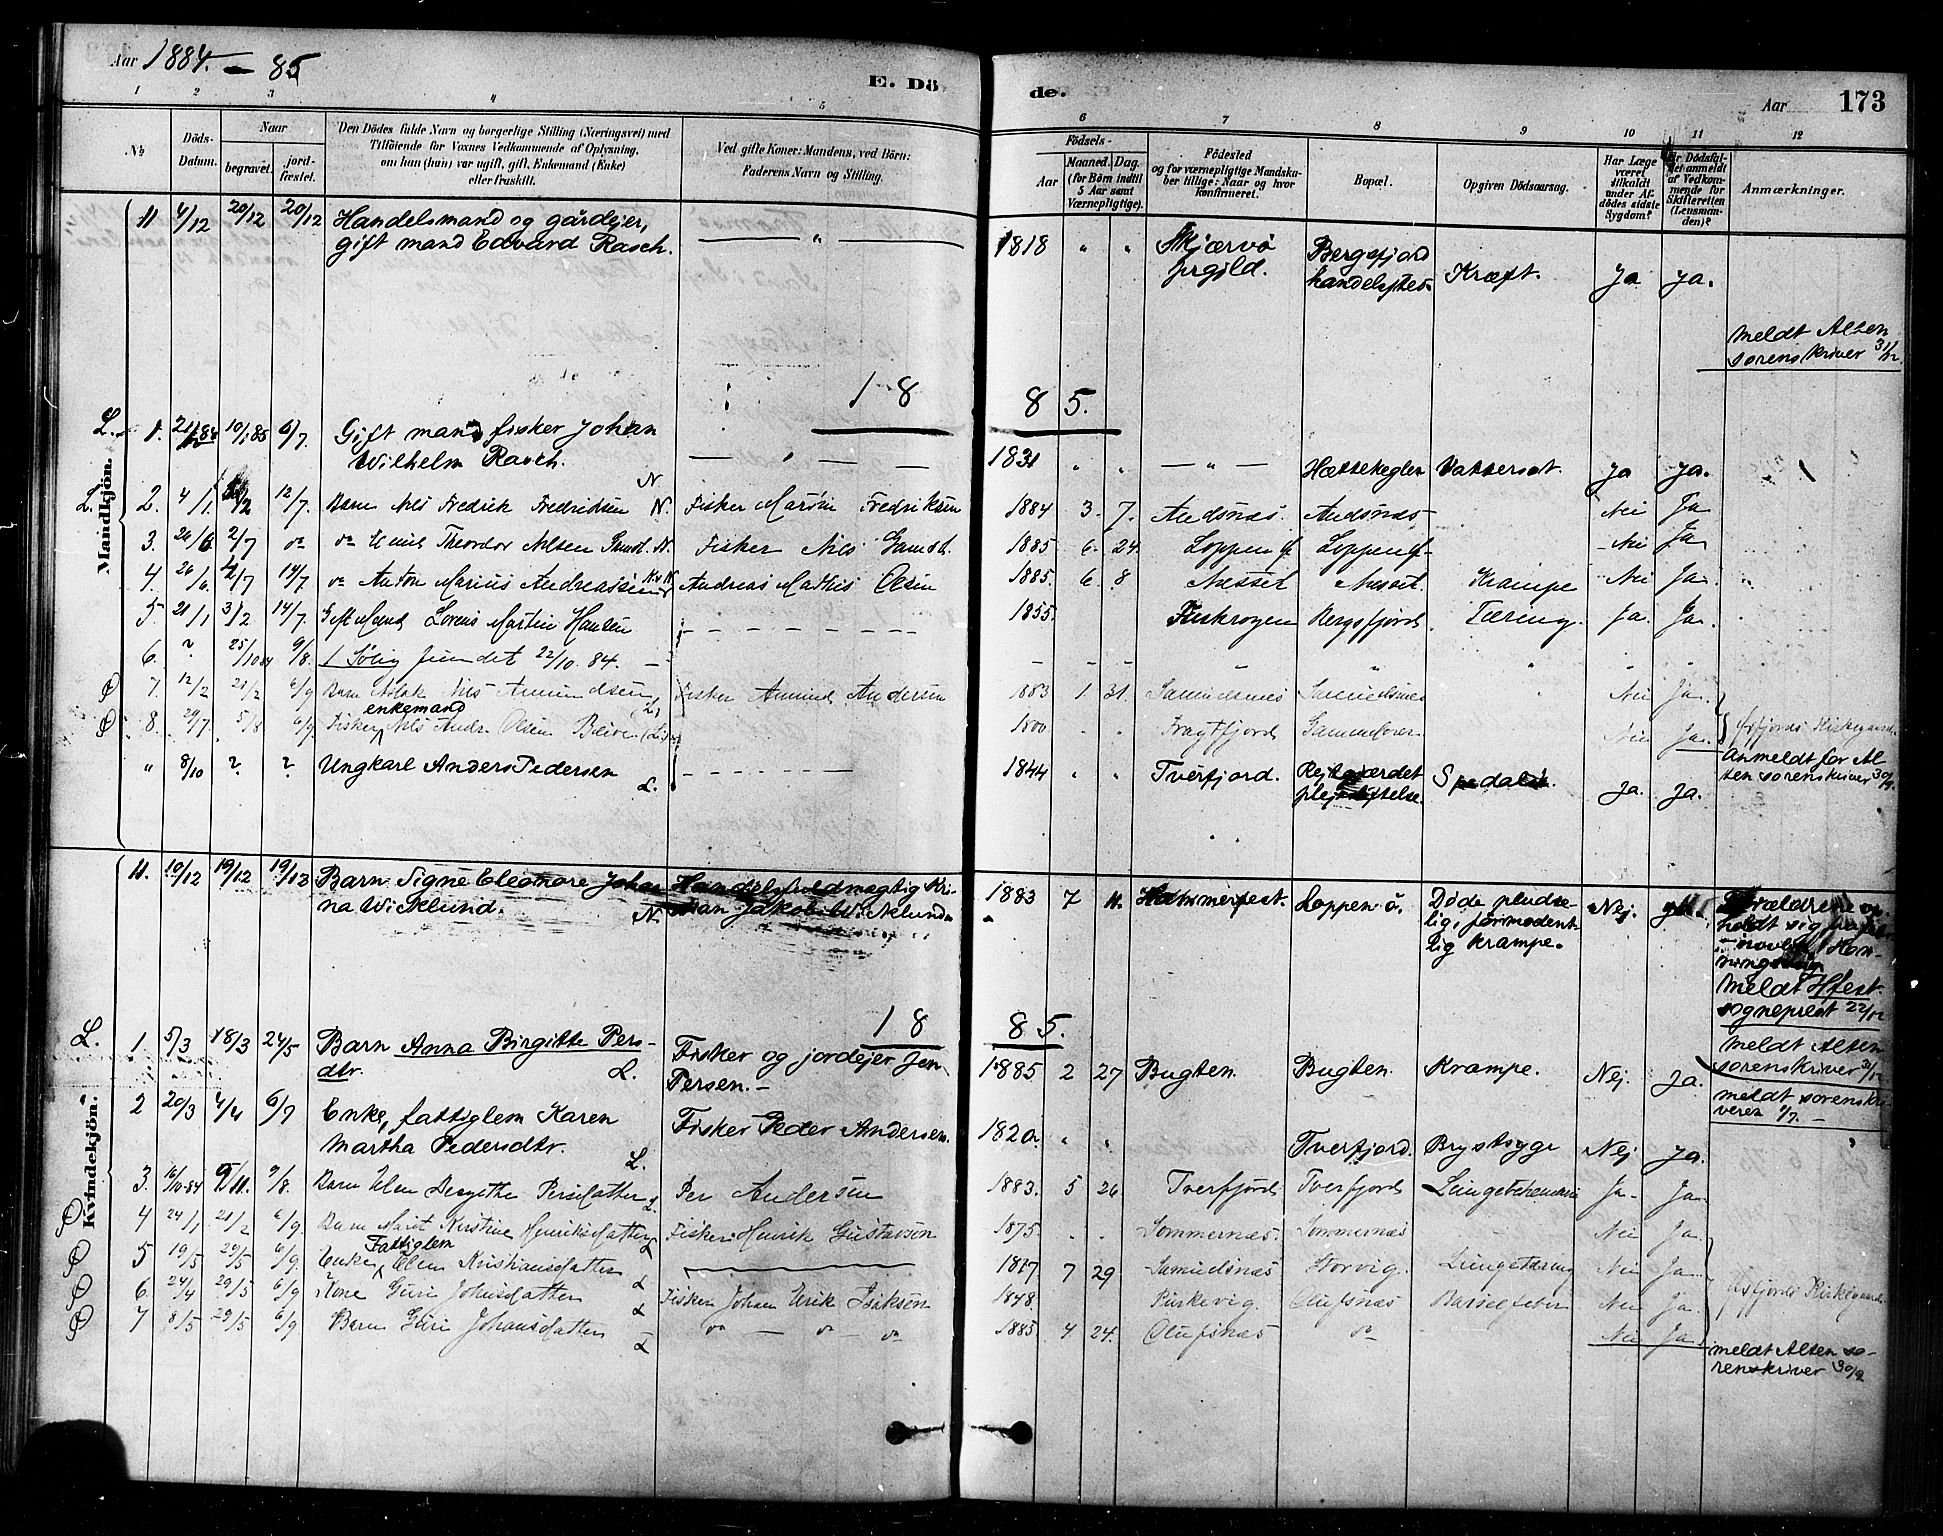 Aar 1884. - 85
E. Dö
de.
Aar 173
1 2 3 4 5 6 7 8 9 10 11 12
№ Döds-Datum. Naar begravet. jordfæstet. Den Dödes fulde Navn og borgerlige Stilling (Næringsvei) med Tilföiende for Voxnes Vedkommende af Oplysning, om han (hun) var ugift, gift, Enkemand (Enke) eller fraskilt. Ved gifte Koner: Mandens, ved Börn: Faderens Navn og Stilling. Födsels- Aar Maaned. Dag. (for Börn indtil 5 Aar samt Værnepligtige). Födested og for værnepligtige Mandskaber tillige: Naar og hvor konfirmeret. Bopæl. Opgiven Dödsaarsag. Har Læge været tilkaldt under Afdödes sidste Sygdom? Er Dödsfaldet anmeldt af Vedkommende for Skifteretten (Lensmanden)? Anmærkninger.
Mandkjön.
11 4/12 20/12 20/12 Handelsmand og gårdejer,
gift mand Edvard Rasch. — " — 1818 " " Skjærvö prgjld. Bergsfjord handelssted Kræft. Ja ja.
meldt Alten
sorenskriver 31/12.
1885.
L. 1. 21/12 84 10/1 85 6/7. Gift mand fisker Johan
Wilhelm Rasch. — " — 1831 " " — " — Hættekeglen Vattersot. Ja ja.
L. 2. 4/1. 12/7. Barn Nils Fredrik Fredriksen N. Fisker Fredriksen 1884 3. 7. Andsnæs. Andsnæs Nei Ja
3. 26/6 2/7 do do Emil Theodor Nilsen N. Fisker Nils 1885 6. 24. Loppen Ø. Loppen Ø Nei Ja
4. 26/6 2/7 14/7. do Anton Marius Andreassen Andreas Mathis Olsen 1885. 6. 8 Nesset Nesset. Krampe Nei Ja.
5. 21/1 3/2 14/7. Gift Mand Lorens Martin Hansen — 1855. Fiskrogen Bergsfjord. Tæring. Ja. Ja.
6. ? 25/10 84 9/8. 1 Sølig fundet 22/10. 84. —
7. 12/2 21/2 6/9 Barn Aslak Nils Amundsen Fisker Amund Andersen 1883 1 31. Samuelsnes Samuelsnes Nei Ja
enkemand
8. 29/7. 5/8 6/9 Fisker Nils Andr. Olsen (L.) 1800 Fragtfjord Nei Ja. Øxfjords Kirkegaard
" 8/10 ? ? Ungkarl Anders Pedersen L. — 1844 " " Tverfjord. Rejtgjærdet plejestiftelse. Spedalsk. Ja. Ja. Anmeldt for Al-
ten sorenskriver 30/9.
Kvindekjön.
11. 10/12 19/12 19/12 Barn Signe Eleonore Johan-
na Wiklund. N. Handelsfuldmægtig Kri-
stian Jakob Wiklund 1883 7 11. Hammerfest. Loppen ö. Döde pludse-
lig, formodent-
lig krampe. Nej. Forældrene op-
holdt sig
meldt Hfest.
sogneprest 22/12
meldt Alten
sorenskriver 31/12
1885.
L. 1. 5/3 18/3 24/5 Barn Anna Birgitte Pers-
dtr. L. Fisker og jordejer Jen
Persen. — 1885 2 27 Bugten. Bugten. Krampe. Nej. Ja.
meldt sorenskri-
veren 6/7. —
2 20/3 4/4 6/7 Enke, fattiglem Karen
Martha Pedersdtr. L. Fisker Peder Andersen. 1820. " " Tverfjord. Brystsyge Nej Ja.
3. 16/10 84 9/11. 9/8. Barn Elen Persdatter L. Per Andersen 1883. 5 26 Tverfjord Tverfjord Ja Ja
4 24/1 21/2 6/9. Barn Marit Kirstine Henriksdatter L Fisker Henrik Gustavsen 1875. Sommernæs. Sommernæs Nei Ja.
Fattiglem
5 19/5 29/5 6/9. Enke Elen Kristiansdatter L — 1817 7 29 Samuelsnæs Storvig. Lungetæring Nei Ja
6. 24/4 29/5 6/9 Kone Guri Johnsdatter L Fisker Johan Erik Isaksen 1848. Purkevig. Olufsnæs Barselfeber Nei Ja. Øxfjords Kirkegaard.
7 8/5 29/5 6/9 Barn Guri Johansdatter L do — do — do 1885 4 24. Olufsnæs do Nei Ja.
meldt Alten so-
renskriver 30/9